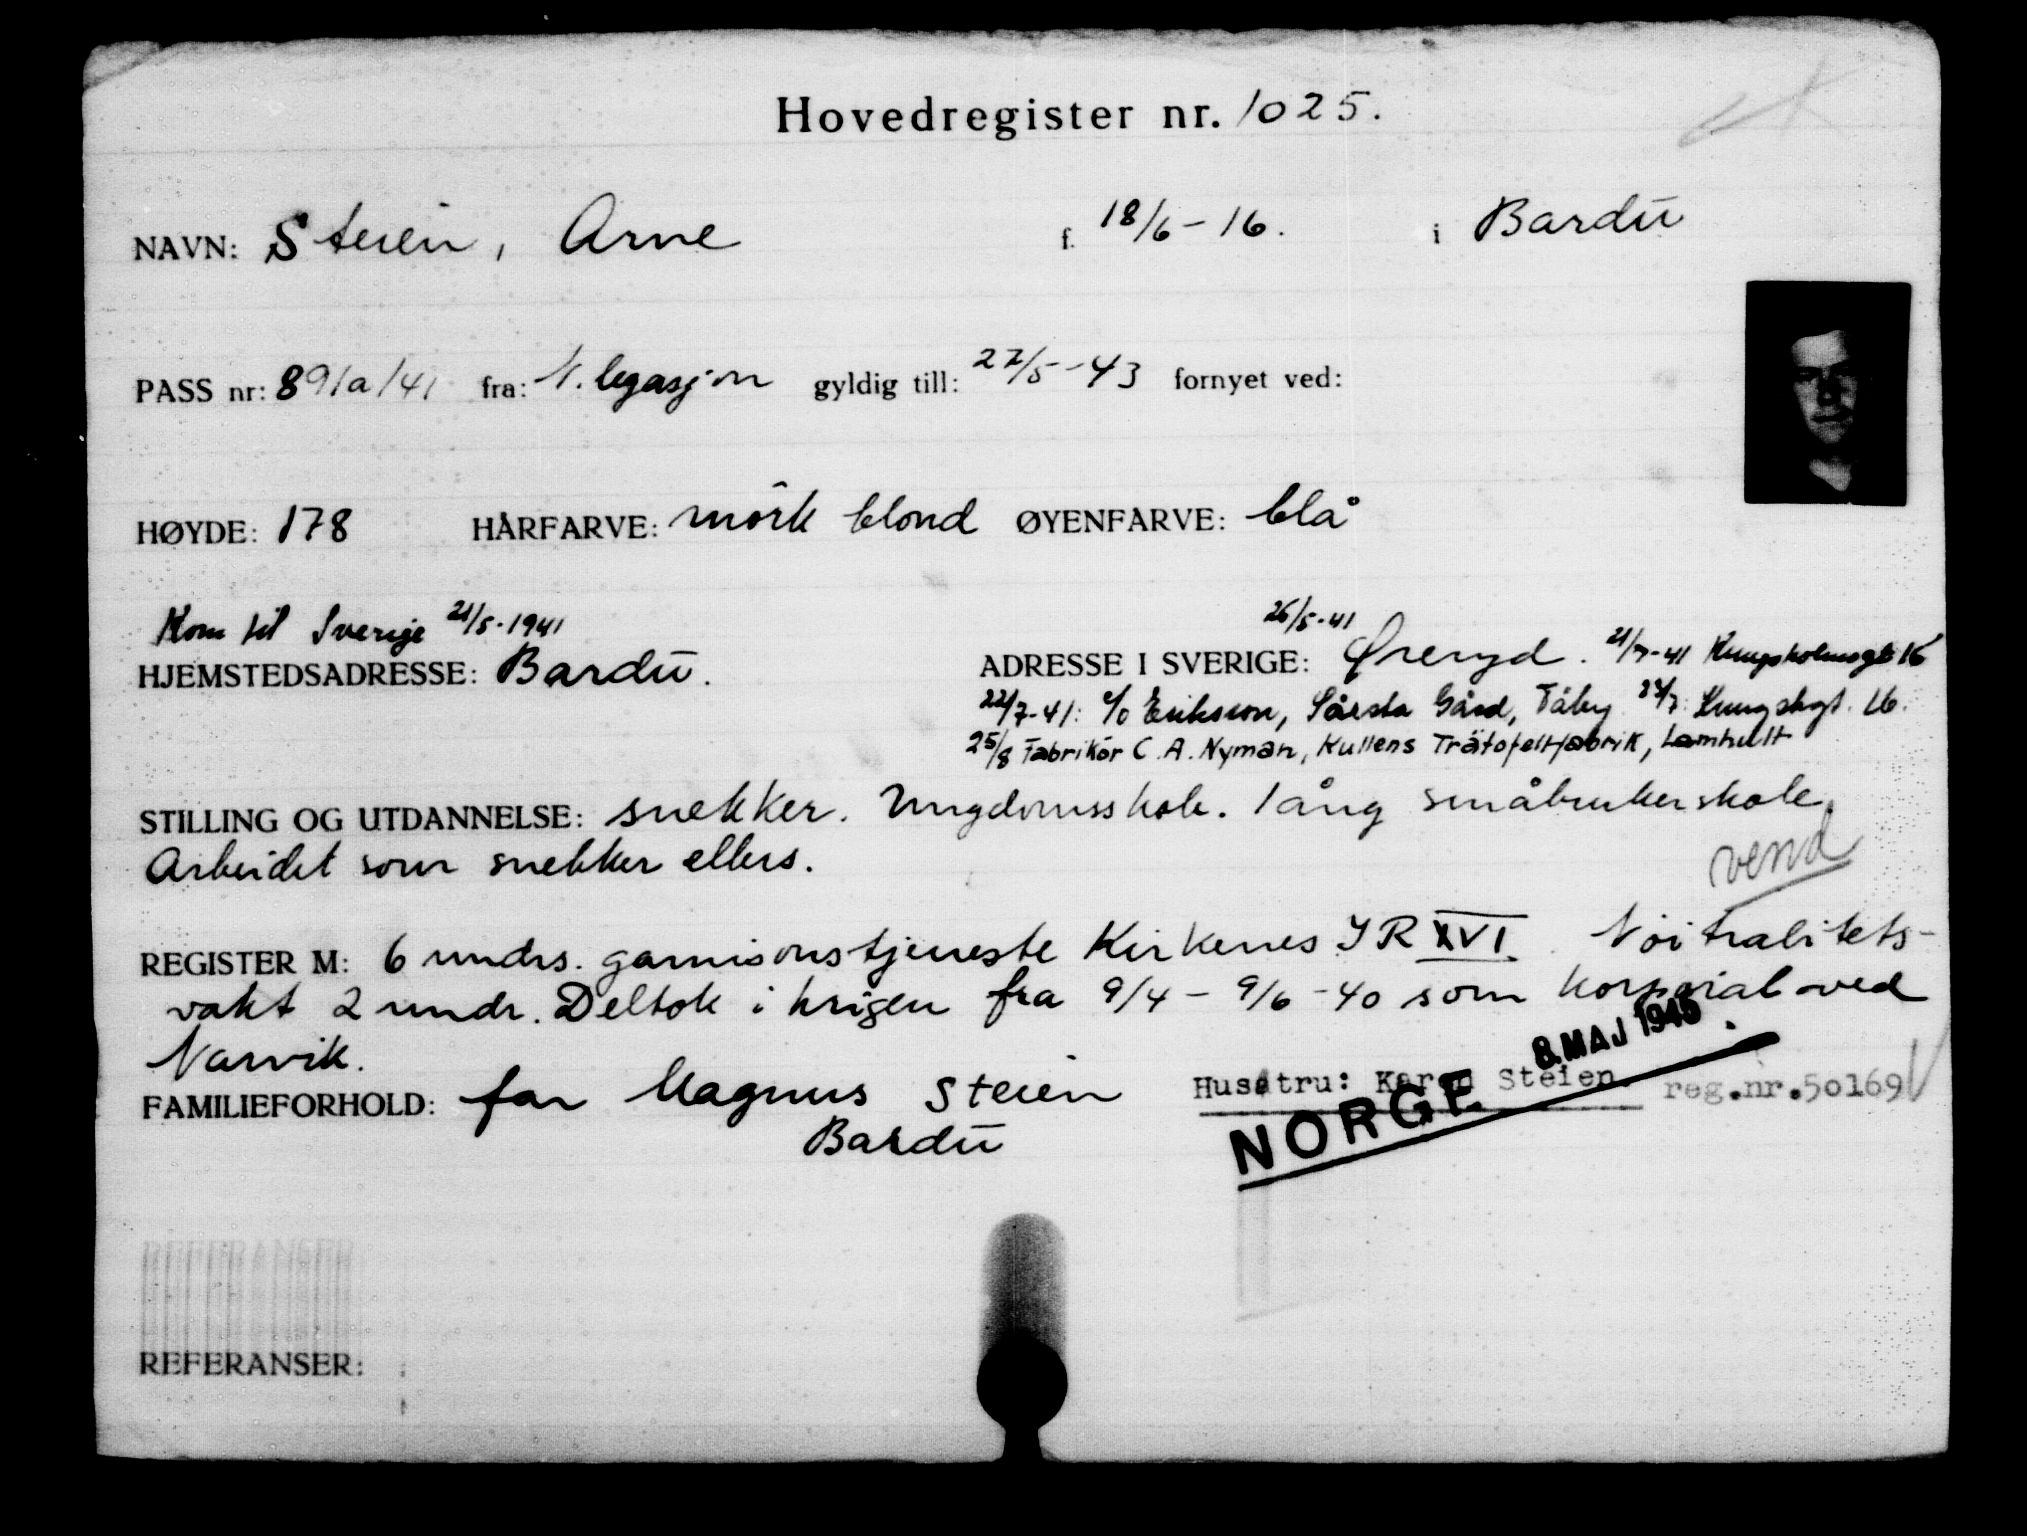 Hovedregister nr. 1025.
NAVN: Steien, Arne f. 18/6-16. i Bardu
PASS nr: 891a/41 fra: N. legasjon gyldig till: 22/5-43 fornyet ved:
HØYDE: 178 HÅRFARVE: mörk blond ØYENFARVE: blå
Kom til Sverige 21/5-1941
HJEMSTEDSADRESSE: Bardu.
26/5-41
ADRESSE I SVERIGE: Øreryd. 21/7-41 Kungsholmsgt 16
22/7-41: c/o Eriksson, Gård, Täby 23/7: Kungshgt. 16.
25/8 Fabrikör C. A. Nyman, Kullens Trätoffelfabrik, Lamhult
STILLING OG UTDANNELSE: snekker. Ungdomsskole. 1 årig småbrukerskole.
Arbeidet som snekker ellers.
vend
REGISTER M: 6 mndrs. garnisonstjeneste Kirkenes IR XVI. Nøitralitets-
vakt 2 mndr. Deltok i krigen fra 9/4 - 9/6-40 som korporal ved
Narvik.
8. MAJ 1945
FAMILIEFORHOLD: far Magnus Steien Hustru: Karen Steien. reg.nr.50169
Bardu
NORGE
REFERANSER: